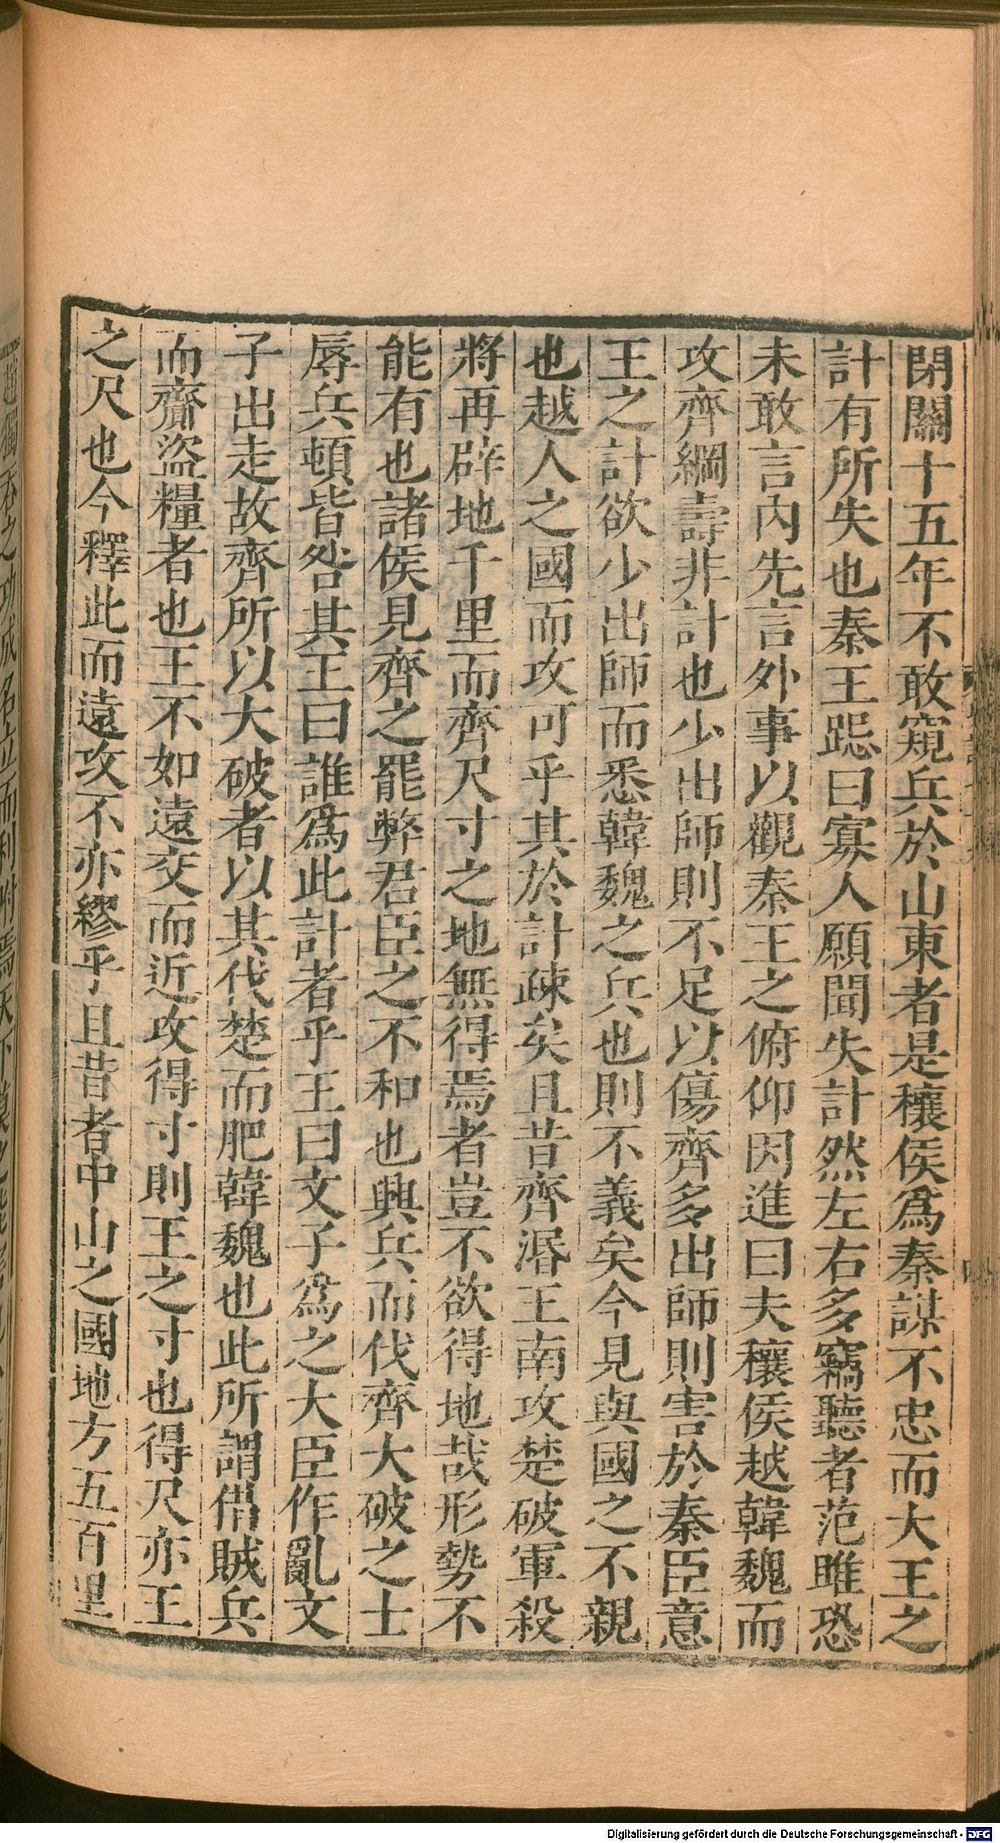 閉關十五年不敢窺兵於山東者是穰侯爲秦謀不忠而大王之
計有所失也秦王跽曰寡人願聞失計然左右多竊聽者范雎恐
未敢言內先言外事以觀秦王之俯仰因進曰夫穰侯越韓魏而
攻齊綱壽非計也少出師則不足以傷齊多出師則害於秦臣意
王之計欲少出師而悉韓魏之兵也則不義矣今見與國之不親
也越人之國而攻可乎其於計疎矣且昔齊湣王南攻楚破軍殺
將再辟地千里而齊尺寸之地無得焉者豈不欲得地哉形勢不
能有也諸侯見齊之罷弊君臣之不和也興兵而伐齊大破之士
辱兵頓皆咎其王曰誰爲此計者乎王曰文子爲之大臣作亂文
子出走故齊所以大破者以其伐楚而肥韓魏也此所謂借賊兵
而齎盜糧者也王不如遠交而近攻得寸則王之寸也得尺亦王
之尺也今釋此而遠攻不亦繆乎且昔者中山之國地方五百里
Digitalisierung gefördert durch die Deutsche Forschungsgemeinschaft - DFG